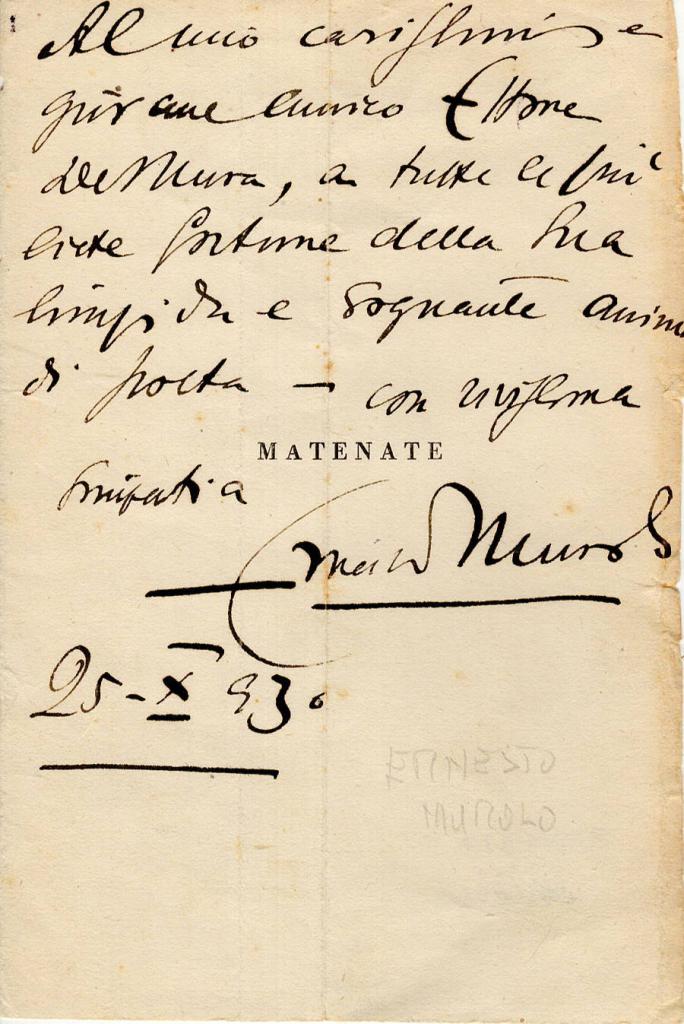 Al mio carissimo e
giovane amico Ettore
De Mura, a tutte le più
liete fortune della sua
limpida e sognante anima
di poeta — con vivissima
MATENATE
simpatia
Ernesto Murolo
25-X 930
ERNESTO
MUROLO